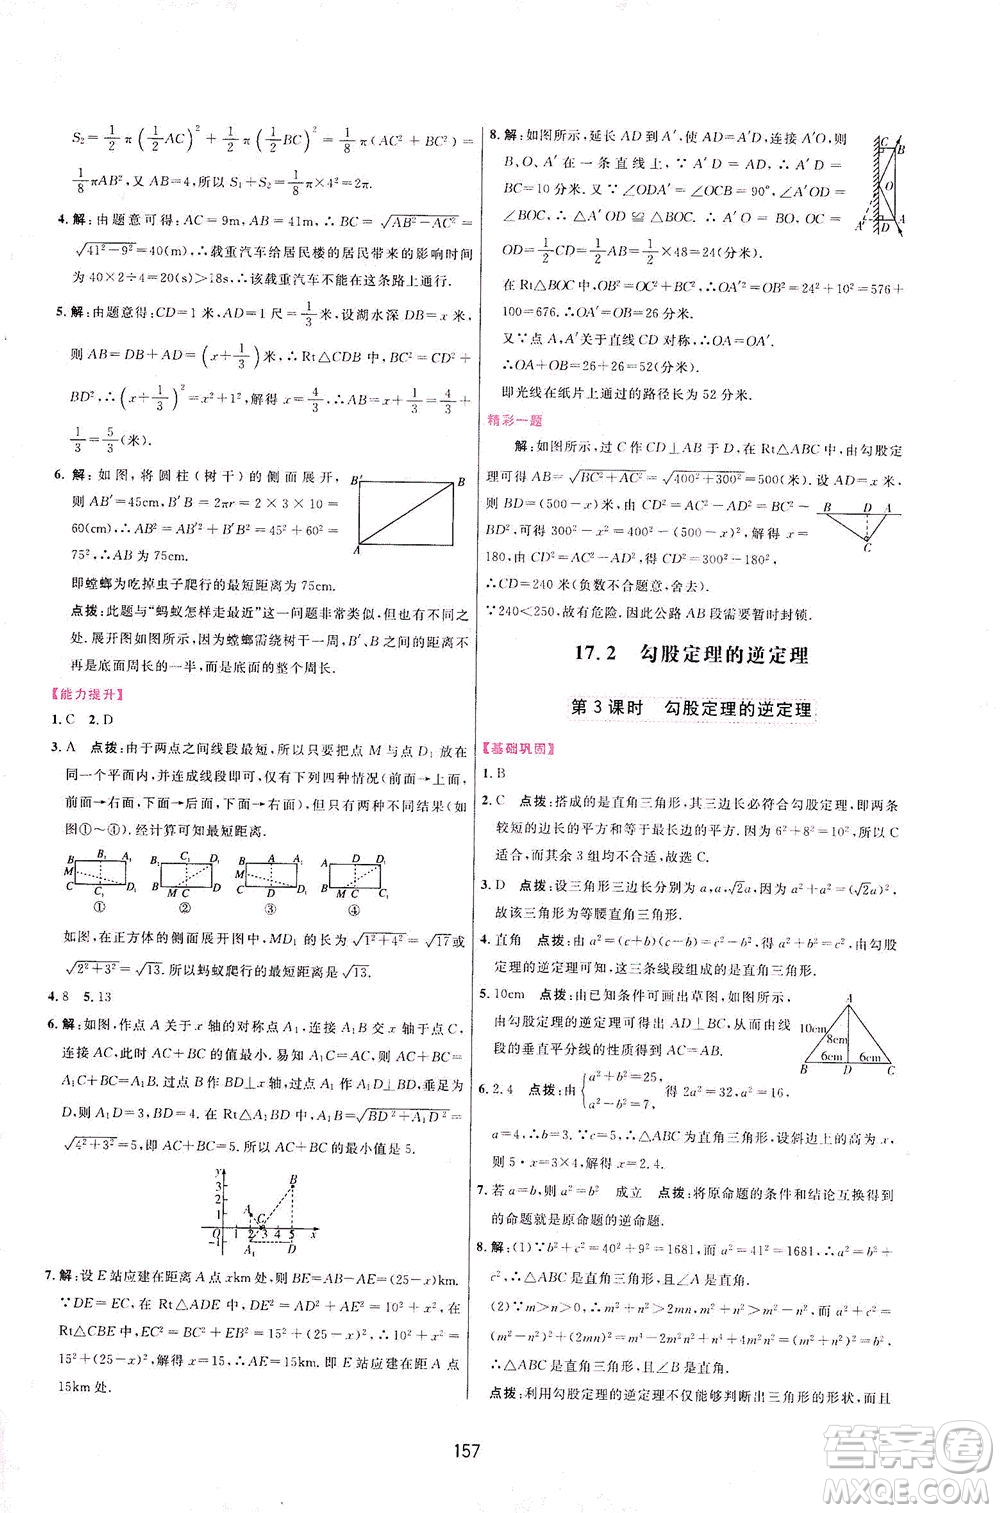 S₂=1/2π(1/2AC)²+1/2π(1/2BC)²=1/8π(AC²+BC²)=
1/8πAB²,又AB=4,所以S₁+S₂=1/8π×4²=2π.
4. 解:由题意可得:AC=9m,AB=41m,∴BC=√(AB²-AC²)=
√(41²-9²)=40(m),∴载重汽车给居民楼的居民带来的影响时间
为40×2÷4=20(s)>18s,∴该载重汽车不能在这条路上通行.
5. 解:由题意得:CD=1米,AD=1尺=1/3米,设湖水深DB=x米,
则AB=DB+AD=(x+1/3)米,∴Rt△CDB中,BC²=CD²+
BD²,∴(x+1/3)²=x²+1²,解得x=4/3米,∴x+1/3=4/3+
1/3=5/3(米).
6. 解:如图,将圆柱(树干)的侧面展开,
则AB′=45cm,B′B=2πr=2×3×10=
60(cm),∴AB²=AB′²+B′B²=45²+60²=
75²,∴AB=75cm.
即螳螂为吃掉虫子爬行的最短距离为75cm.
点拨:此题与“蚂蚁怎样走最近”这一问题非常类似,但也有不同之
处.展开图如图所示,因为螳螂需绕树干一周,B′、B之间的距离不
再是底面周长的一半,而是底面的整个周长.
B′
B
A
【能力提升】
1. C  2. D
3. A 点拨:由于两点之间线段最短,所以只要把点M与点D₁放在
同一个平面内,并连成线段即可,如有下列四种情况(前面→上面,
前面→右面,左面→上面,下面→右面)两种不同的结果(如
图①~④).经计算可知最短距离.
B B₁ A₁
M
C C₁ D₁
①
B C₁ D₁
B M C
②
C D D₁
B M C
③
B C D
M
C C₁ D₁
④
如图,在正方体的侧面展开图中,MD₁的长为√(1²+4²)=√17或
√(2²+3²)=√13.所以蚂蚁爬行的最短距离为√13.
4. 8  5. 13
6. 解:如图,作点A关于x轴的对称点A₁,连接A₁B交x轴于点C,
连接AC,此时AC+BC的值最小.易知A₁C=AC,AC+BC=
A₁C+BC=A₁B.过点B作BD⊥x轴,过点A₁作A₁D⊥BD,垂足为
D,则A₁D=3,BD=4,在Rt△A₁BD中,A₁B=√(BD²+A₁D²)=
√(4²+3²)=5,即AC+BC=5.所以AC+BC的最小值是5.
y
3
2
1
O
1 2 3 4 5 6 x
A
B
C
A₁
D
7. 解:设E站应建在距离A点xkm处,则BE=AB-AE=(25-x)km.
∵DE=EC,在Rt△ADE中,DE²=AD²+AE²=10²+x²,在
Rt△CBE中,EC²=BC²+EB²=15²+(25-x)²,∴10²+x²=
15²+(25-x)²,解得x=15,∴AE=15km.即E站应建在距A点
15km处.
8. 解:如图所示,延长AD到A′,使A′D=AD,连接A′O,则
B、O、A′在一条直线上,∵A′D=AD=
BC=10分米,又∵∠ODA′=∠OCB=90°,∠A′OD
=∠BOC,∴△A′OD≌△BOC,∴OA′=BO,OC=
OD=1/2CD=1/2AB=1/2×48=24(分米).
在Rt△BOC中,OB²=OC²+BC²,∴OA′²=OB²=24²+10²=576+
100=676.∴OA′=OB=26(分米).
又∵点A,A′关于直线CD对称,∴OA=OA′.
∴OA+OB=26+26=52(分米).
即光线在纸片上通过的路径长为52分米.
C
B
O
A′
D
A
精彩一题
解:如图所示,过C作CD⊥AB于D,在Rt△ABC中,由勾股定
理可得AB=√(BC²+AC²)=√(400²+300²)=500(米).设AD=x米,
则BD=(500-x)米.由CD²=AC²-AD²=BC²-
BD²,可得300²-x²=400²-(500-x)²,解得x=
180,由CD²=AC²-AD²,得CD²=300²-180²,
∴CD=240米(负数不合题意,舍去).
∵240<250,故有危险.因此公路AB段需要暂时封锁.
B D A
C
17.2 勾股定理的逆定理
第3课时 勾股定理的逆定理
【基础巩固】
1. B
2. C 点拨:搭成的是直角三角形,其三边长必符合勾股定理,即两条
较短的边长的平方和等于最长边的平方.因为6²+8²=10²,所以C
适合,而其余3组均不合适,故选C.
3. D 点拨:设三角形三边长分别为a,a,√2a,因为a²+a²=(√2a)²,
故该三角形为等腰直角三角形.
4. 直角 点拨:由a²=(c+b)(c-b)=c²-b²,得a²+b²=c²,由勾股
定理的逆定理可知,这三条线段组成的是直角三角形.
5. 10cm 点拨:由已知条件可画出草图,如图所示,
由勾股定理的逆定理可得出AD⊥BC,再由线
段的垂直平分线的性质得出AC=AB.
A
10cm
8cm
6cm 6cm
B D C
6. 2.4 点拨:由{a²+b²=25, a²-b²=7, 得2a²=32,∴a²=16,
a=4,∴b=3.∵5²=3²+4²,∴△ABC为直角三角形,设斜边上的高为x,
则5·x=3×4,解得x=2.4.
7. 若a=b,则a²=b² 成立 点拨:将原命题的条件和结论互换得到
的命题就是原命题的逆命题.
8. 解:(1)∵b²+c²=40²+9²=1681,而a²=41²=1681,∴a²=b²+
c²,∴△ABC是直角三角形,且∠A是直角.
(2)∵m>n>0,∴m²+n²>2mn,m²+n²>m²-n²,∵(m²-
n²)²+(2mn)²=m⁴-2m²n²+n⁴+4m²n²=m⁴+2m²n²+n⁴=(m²+n²)²,
∴△ABC是直角三角形,且∠C是直角.
点拨:利用勾股定理的逆定理不仅能够判断出三角形的形状,而且
157
答案圈
MXQE.COM